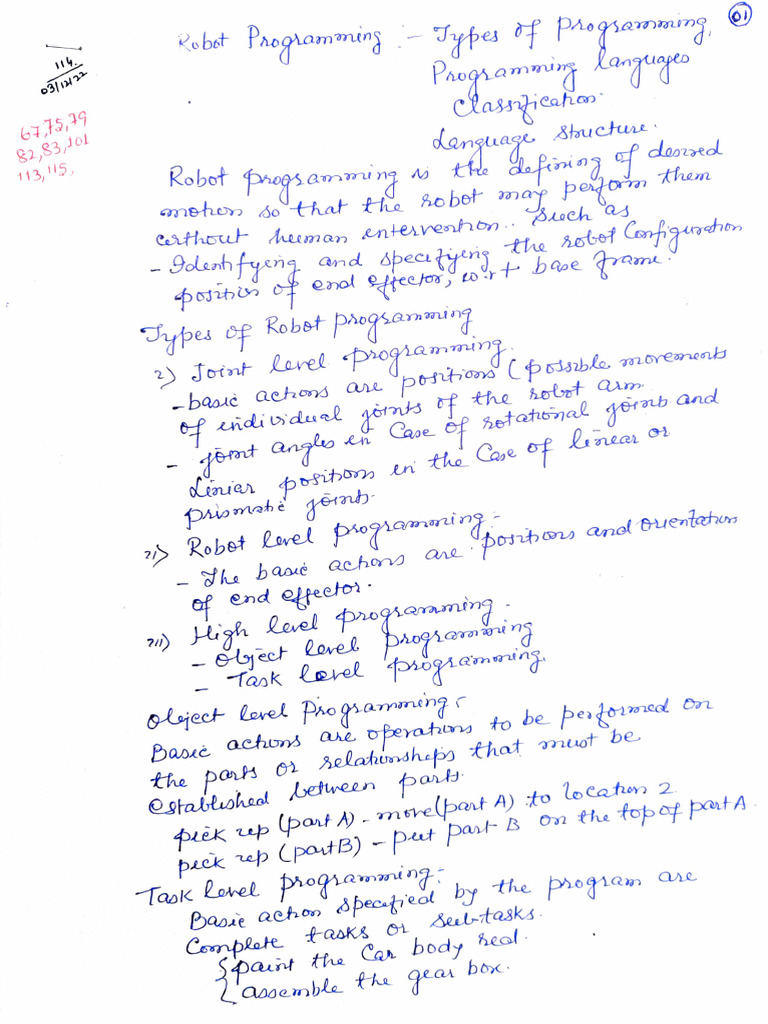 01
Robot Programming :- Types of Programming,
Programming languages
Classification.
Language structure.
114.
03/12/22
67,75,79
82,83,101
113,115,
Robot programming is the defining of desired
motion so that the robot may perform them
without human intervention. Such as
- Identifying and specifying the robot Configuration
position of end effector, w.r.t base frame.
Types of Robot programming
i) Joint level programming.
- basic actions are positions (possible movements
of individual joints of the robot arm.
- joint angles in Case of rotational joints and
Liniar positions in the Case of linear or
prismatic joints.
ii) Robot level programming:-
- The basic actions are positions and orientation
of end effector.
iii) High level programming -
- Object level programming
- Task level programming.
Object level Programming -
Basic actions are operations to be performed on
the parts or relationships that must be
established between parts.
pick up (part A) - move(part A) to location 2
pick up (part B) - put part B on the top of part A.
Task level programming:-
Basic action specified by the program are
Complete tasks or sub-tasks.
{ paint the Car body red.
{ assemble the gear box.